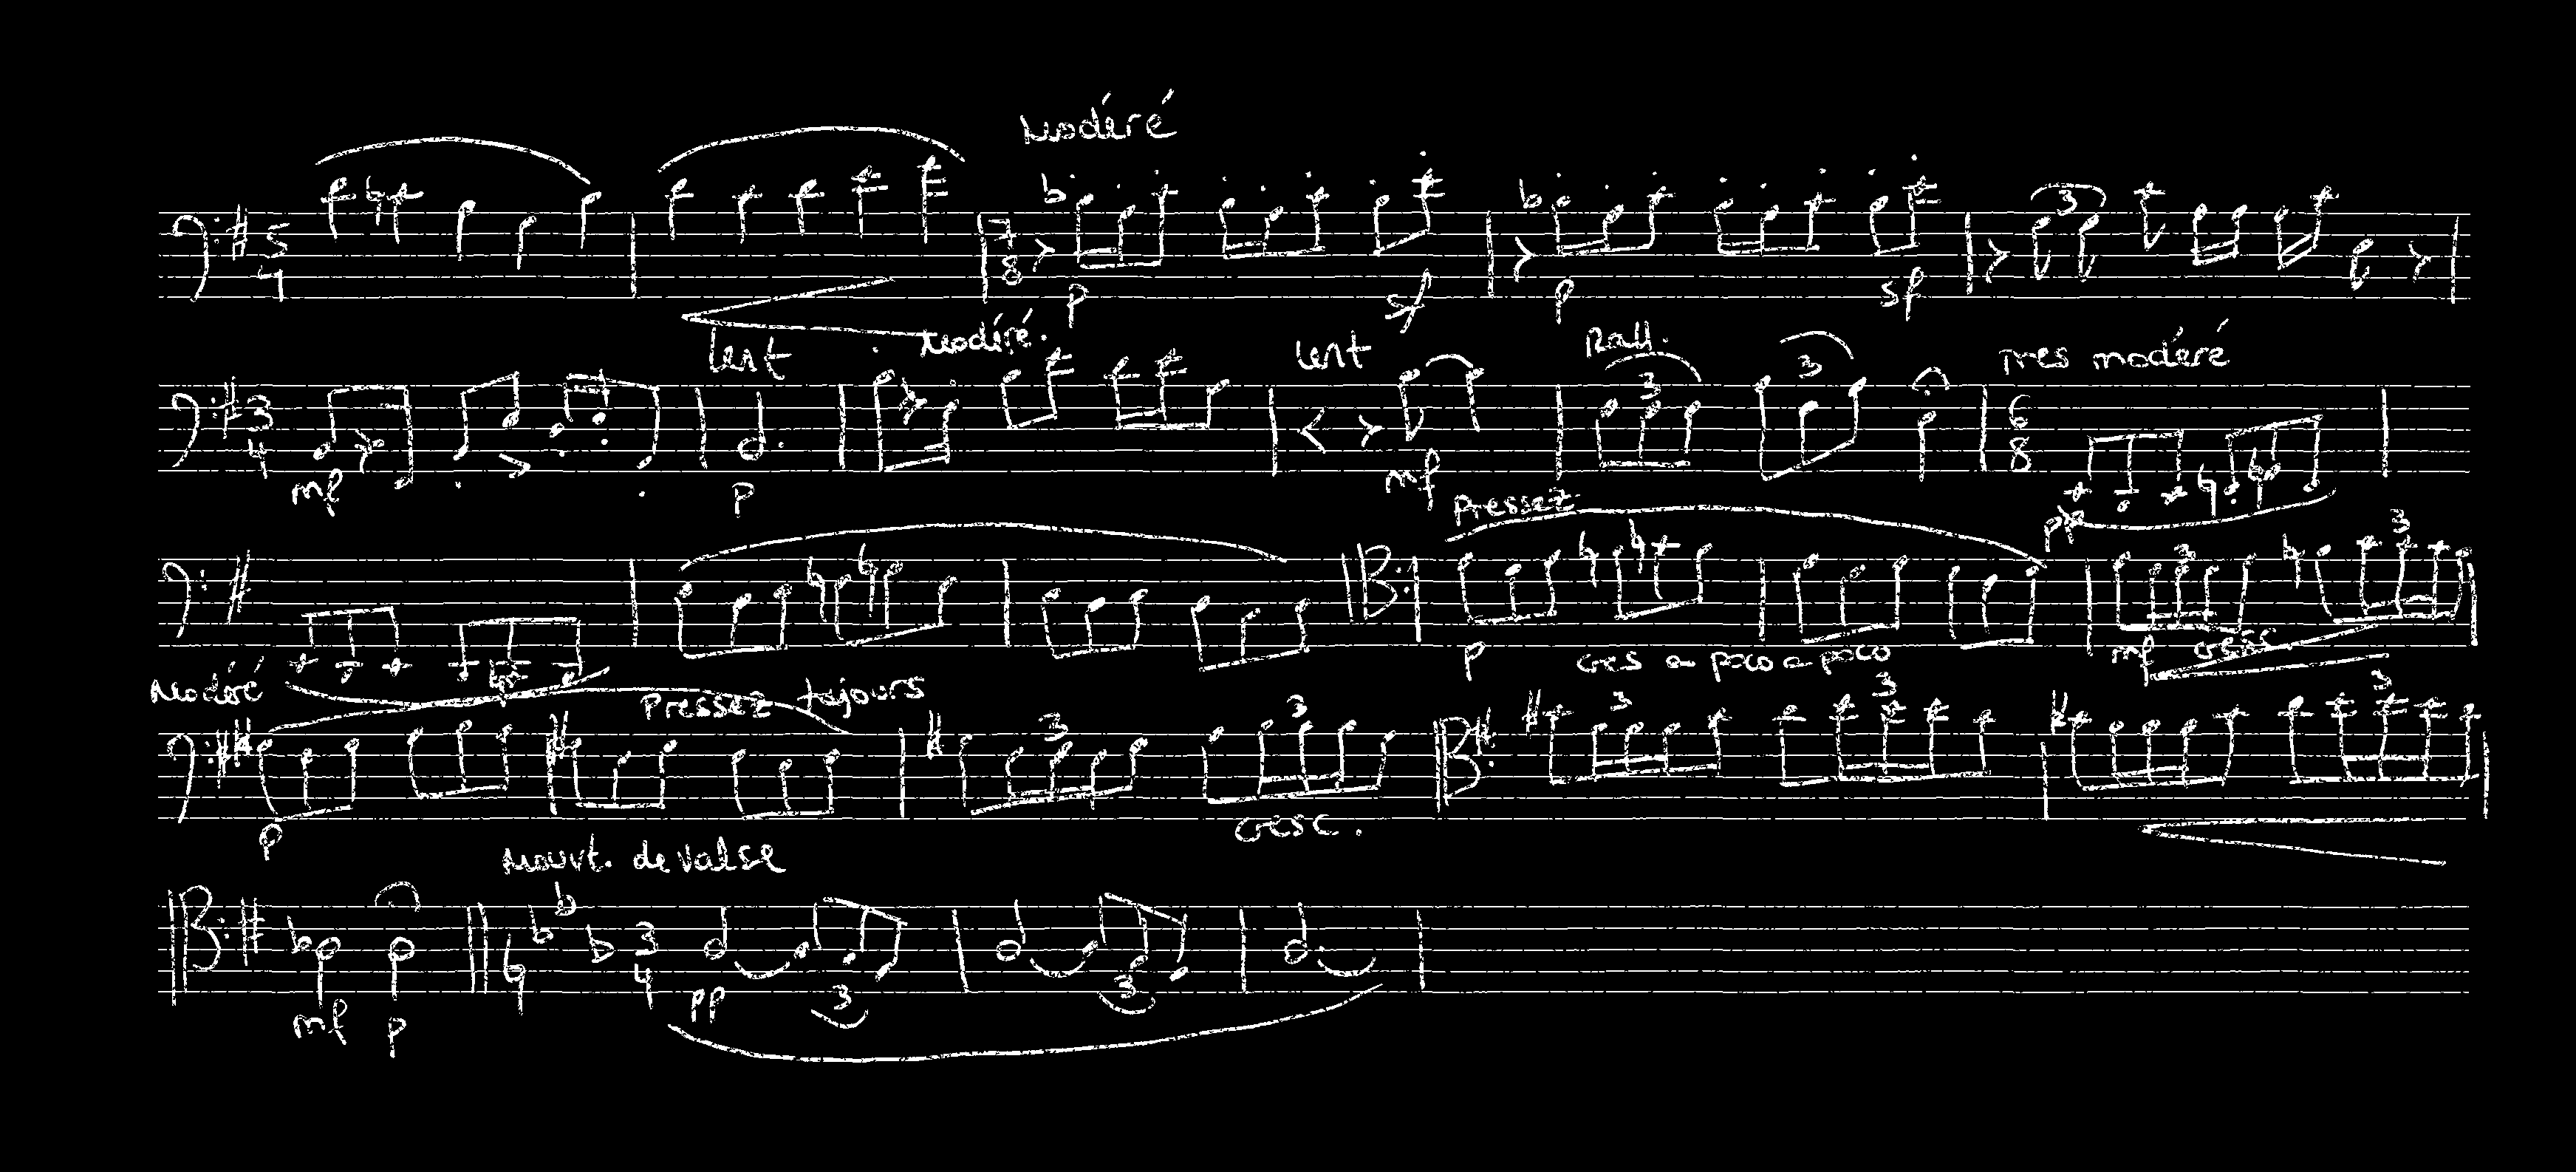 Modéré
5 4 7 8 p sf p sf 3
lent Modéré. lent Rall. Tres modéré
3 4 mf p mf 3 3 6 8 pp
Pressez
p cres a poco a poco mf cresc. 3 3
Modéré Pressez tojours
p 3 3 cresc. 3 3 3
Mouvt. de valse
mf p 3 4 pp 3 3